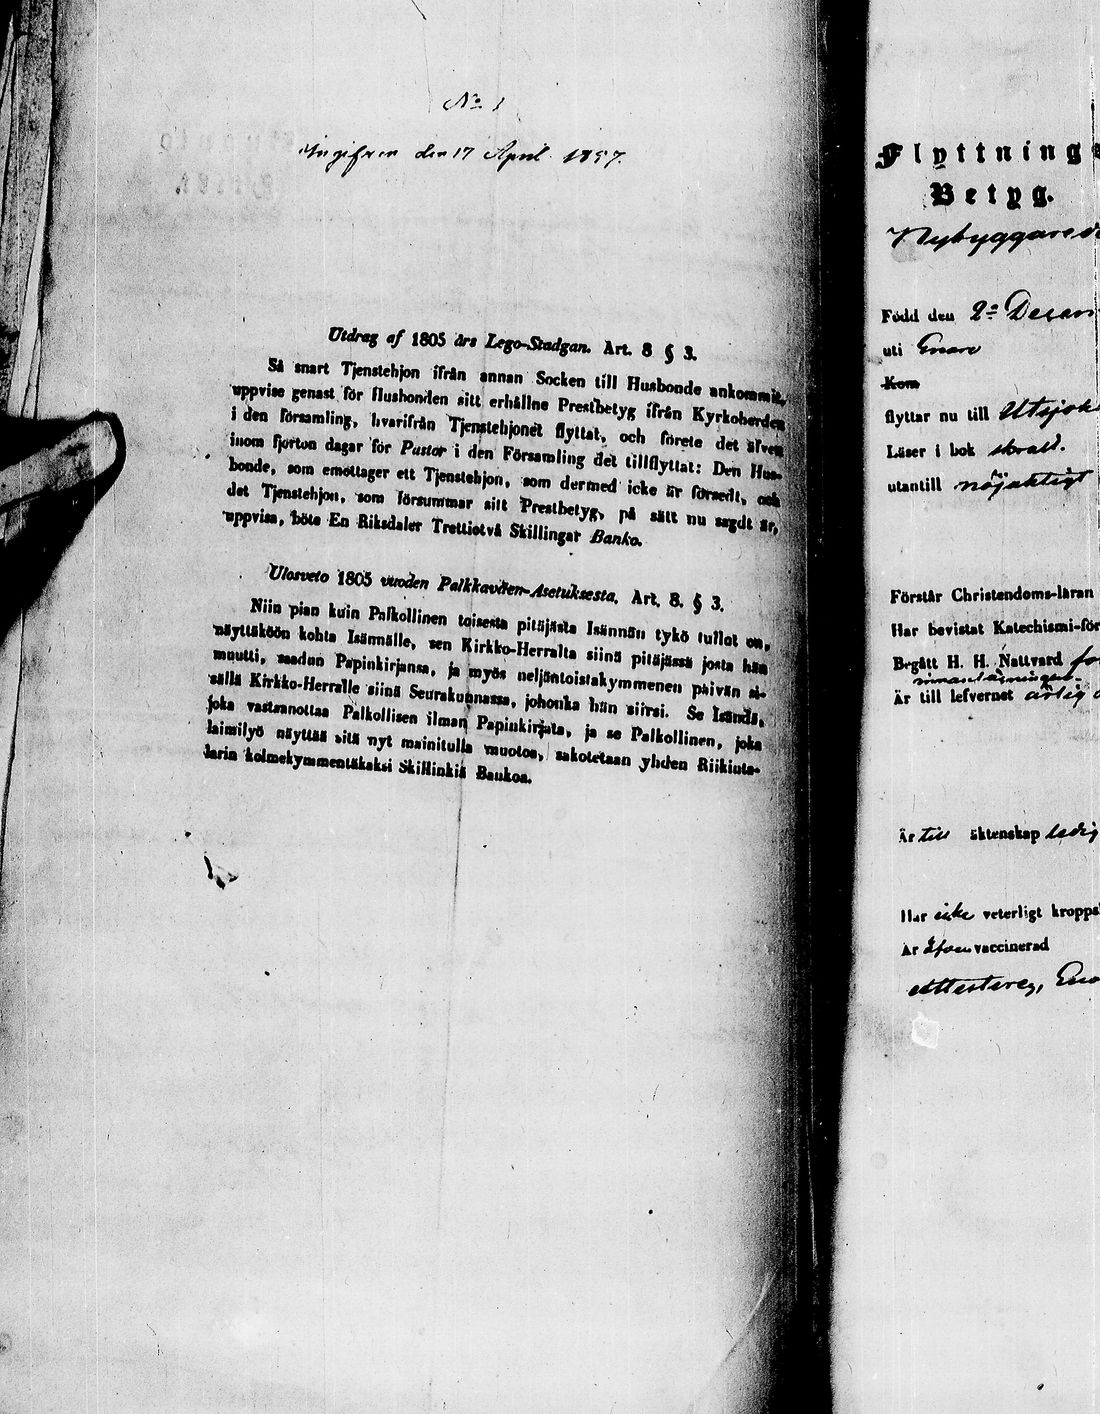 No 1
Ingifven den 17 April 1857.
Utdrag af 1805 års Lego-Stadgan. Art. 8 § 3.
Så snart Tjenstehjon ifrån annan Socken till Husbonde ankommit,
uppvise genast för Husbonden sitt erhållne Prestbetyg ifrån Kyrkoherden
i den församling, hvarifrån Tjenstehjonet flyttat, och förete det äfven
inom fjorton dagar för Pastor i den Församling det tillflyttat: Den Hus-
bonde, som emottager ett Tjenstehjon, som dermed icke är försedt, och
det Tjenstehjon, som försummar sitt Prestbetyg, på sätt nu sagdt är,
uppvisa, böte En Riksdaler Trettiotvå Skillingar Banko.
Ulosveto 1805 vuoden Palkkaväen-Asetuksesta. Art. 8. § 3.
Niin pian kuin Palkollinen toisesta pitäjästa Isännän tykö tullot on,
näyttäköön kohta Isännälle, sen Kirkko-Herralta siinä pitäjässä josta hän
muutti, saadun Papinkirjansa, ja myös neljäntoistakymmenen päivän si-
sällä Kirkko-Herralle siinä Seurakunnassa, johonka hän siirsi. Se Isändä,
joka vastaanottaa Palkollisen ilman Papinkirjata, ja se Palkollinen, joka
laimilyö näyttää sitä nyt mainitulla muotoa, sakotetaan yhden Riikinta-
larin kolmekymmentäkaksi Skillinkiä Bankoa.
Flyttnings
Betyg.
Nybyggare
Född den 2 Decem
uti Enare
Kom
flyttar nu till Utsjok
Läser i bok svalt.
utantill nöjaktigt
Förstår Christendoms-läran
Har bevistat Katechismi-för
Begått H. H. Nattvard
Är till lefvernet ärlig
Är till äktenskap ledig
Har icke veterligt kropps
Är vaccinerad
Attesterar, Ena